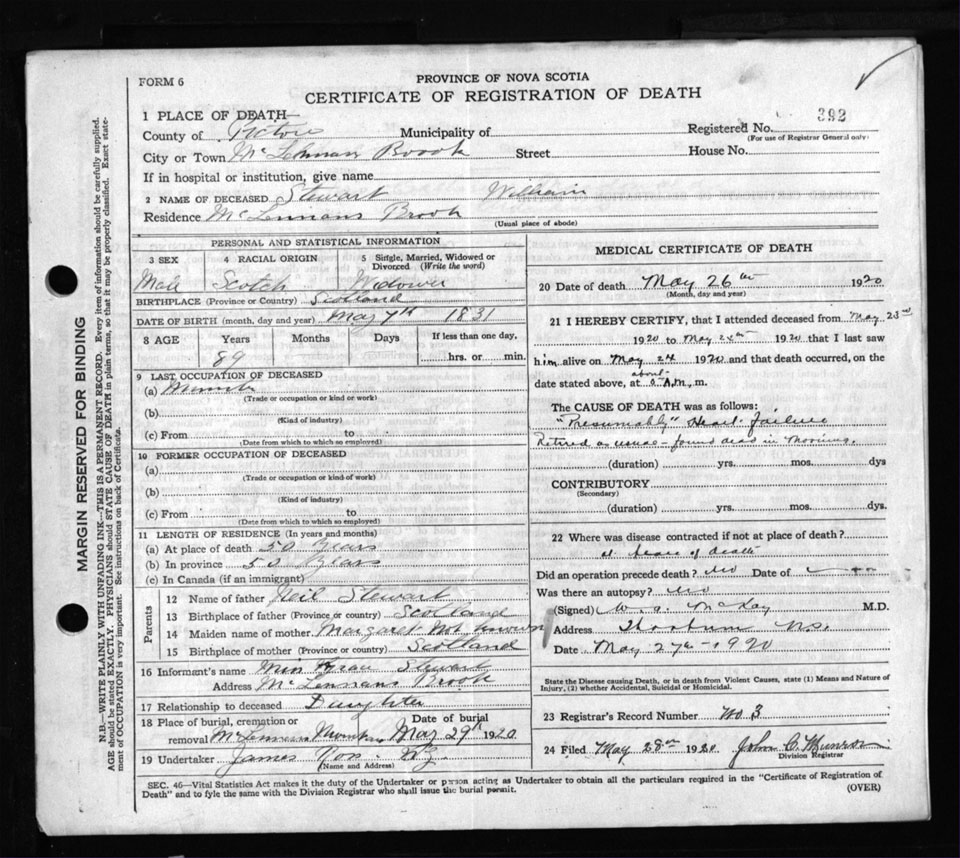 FORM 6
PROVINCE OF NOVA SCOTIA
CERTIFICATE OF REGISTRATION OF DEATH
1 PLACE OF DEATH
County of Pictou Municipality of Registered No. 392
(For use of Registrar General only)
City or Town McLennan Brook Street House No.
If in hospital or institution, give name
2 NAME OF DECEASED Stewart William
Residence McLennans Brook
(Usual place of abode)
PERSONAL AND STATISTICAL INFORMATION
3 SEX 4 RACIAL ORIGIN 5 Single, Married, Widowed or Divorced (Write the word)
Male Scotch Widower
BIRTHPLACE (Province or Country) Scotland
DATE OF BIRTH (month, day and year) May 7th 1831
8 AGE Years Months Days If less than one day,
89 hrs. or min.
9 LAST OCCUPATION OF DECEASED
(a)
(Trade or occupation or kind or work)
(b)
(Kind of industry)
(c) From to
(Date from which to which so employed)
10 FORMER OCCUPATION OF DECEASED
(a)
(Trade or occupation or kind of work)
(b)
(Kind of industry)
(c) From to
(Date from which to which so employed)
11 LENGTH OF RESIDENCE (In years and months)
(a) At place of death 50 Years
(b) In province 50 Years
(c) In Canada (if an immigrant)
Parents
12 Name of father Neil Stewart
13 Birthplace of father (Province or country) Scotland
14 Maiden name of mother Margaret Not known
15 Birthplace of mother (Province or country) Scotland
16 Informant's name Miss Stewart
Address McLennans Brook
17 Relationship to deceased Daughter
18 Place of burial, cremation or removal Date of burial
McLennans Mountain May 29th 1920
19 Undertaker James Ross N.G.
(Name and Address)
MEDICAL CERTIFICATE OF DEATH
20 Date of death May 26th 1920
(Month, day and year)
21 I HEREBY CERTIFY, that I attended deceased from May 23rd
1920 to May 24th 1920 that I last saw
him alive on May 24 1920 and that death occurred, on the
about
date stated above, at A.M, m.
The CAUSE OF DEATH was as follows:
"Presumably" Heart Failure
Retired as usual - found dead in Morning.
(duration) yrs. mos. dys
CONTRIBUTORY
(Secondary)
(duration) yrs. mos. dys.
22 Where was disease contracted if not at place of death?
at place of death
Did an operation precede death? No Date of
Was there an autopsy? No
(Signed) W. A. McKay M.D.
Address Thorburn N.S.
Date May 27th 1920
State the Disease causing Death, or in death from Violent Causes, state (1) Means and Nature of
Injury, (2) whether Accidental, Suicidal or Homicidal.
23 Registrar's Record Number No 3
24 Filed May 28th 1920 John C. Munro
Division Registrar
SEC. 46—Vital Statistics Act makes it the duty of the Undertaker or person acting as Undertaker to obtain all the particulars required in the "Certificate of Registration of
Death" and to fyle the same with the Division Registrar who shall issue the burial permit.
(OVER)
MARGIN RESERVED FOR BINDING
N.B.—WRITE PLAINLY WITH UNFADING INK—THIS IS A PERMANENT RECORD. Every item of information should be carefully supplied.
AGE should be stated EXACTLY. PHYSICIANS should STATE CAUSE OF DEATH in plain terms, so that it may be properly classified. Exact state-
ment of OCCUPATION is very important. See instructions on back of Certificate.